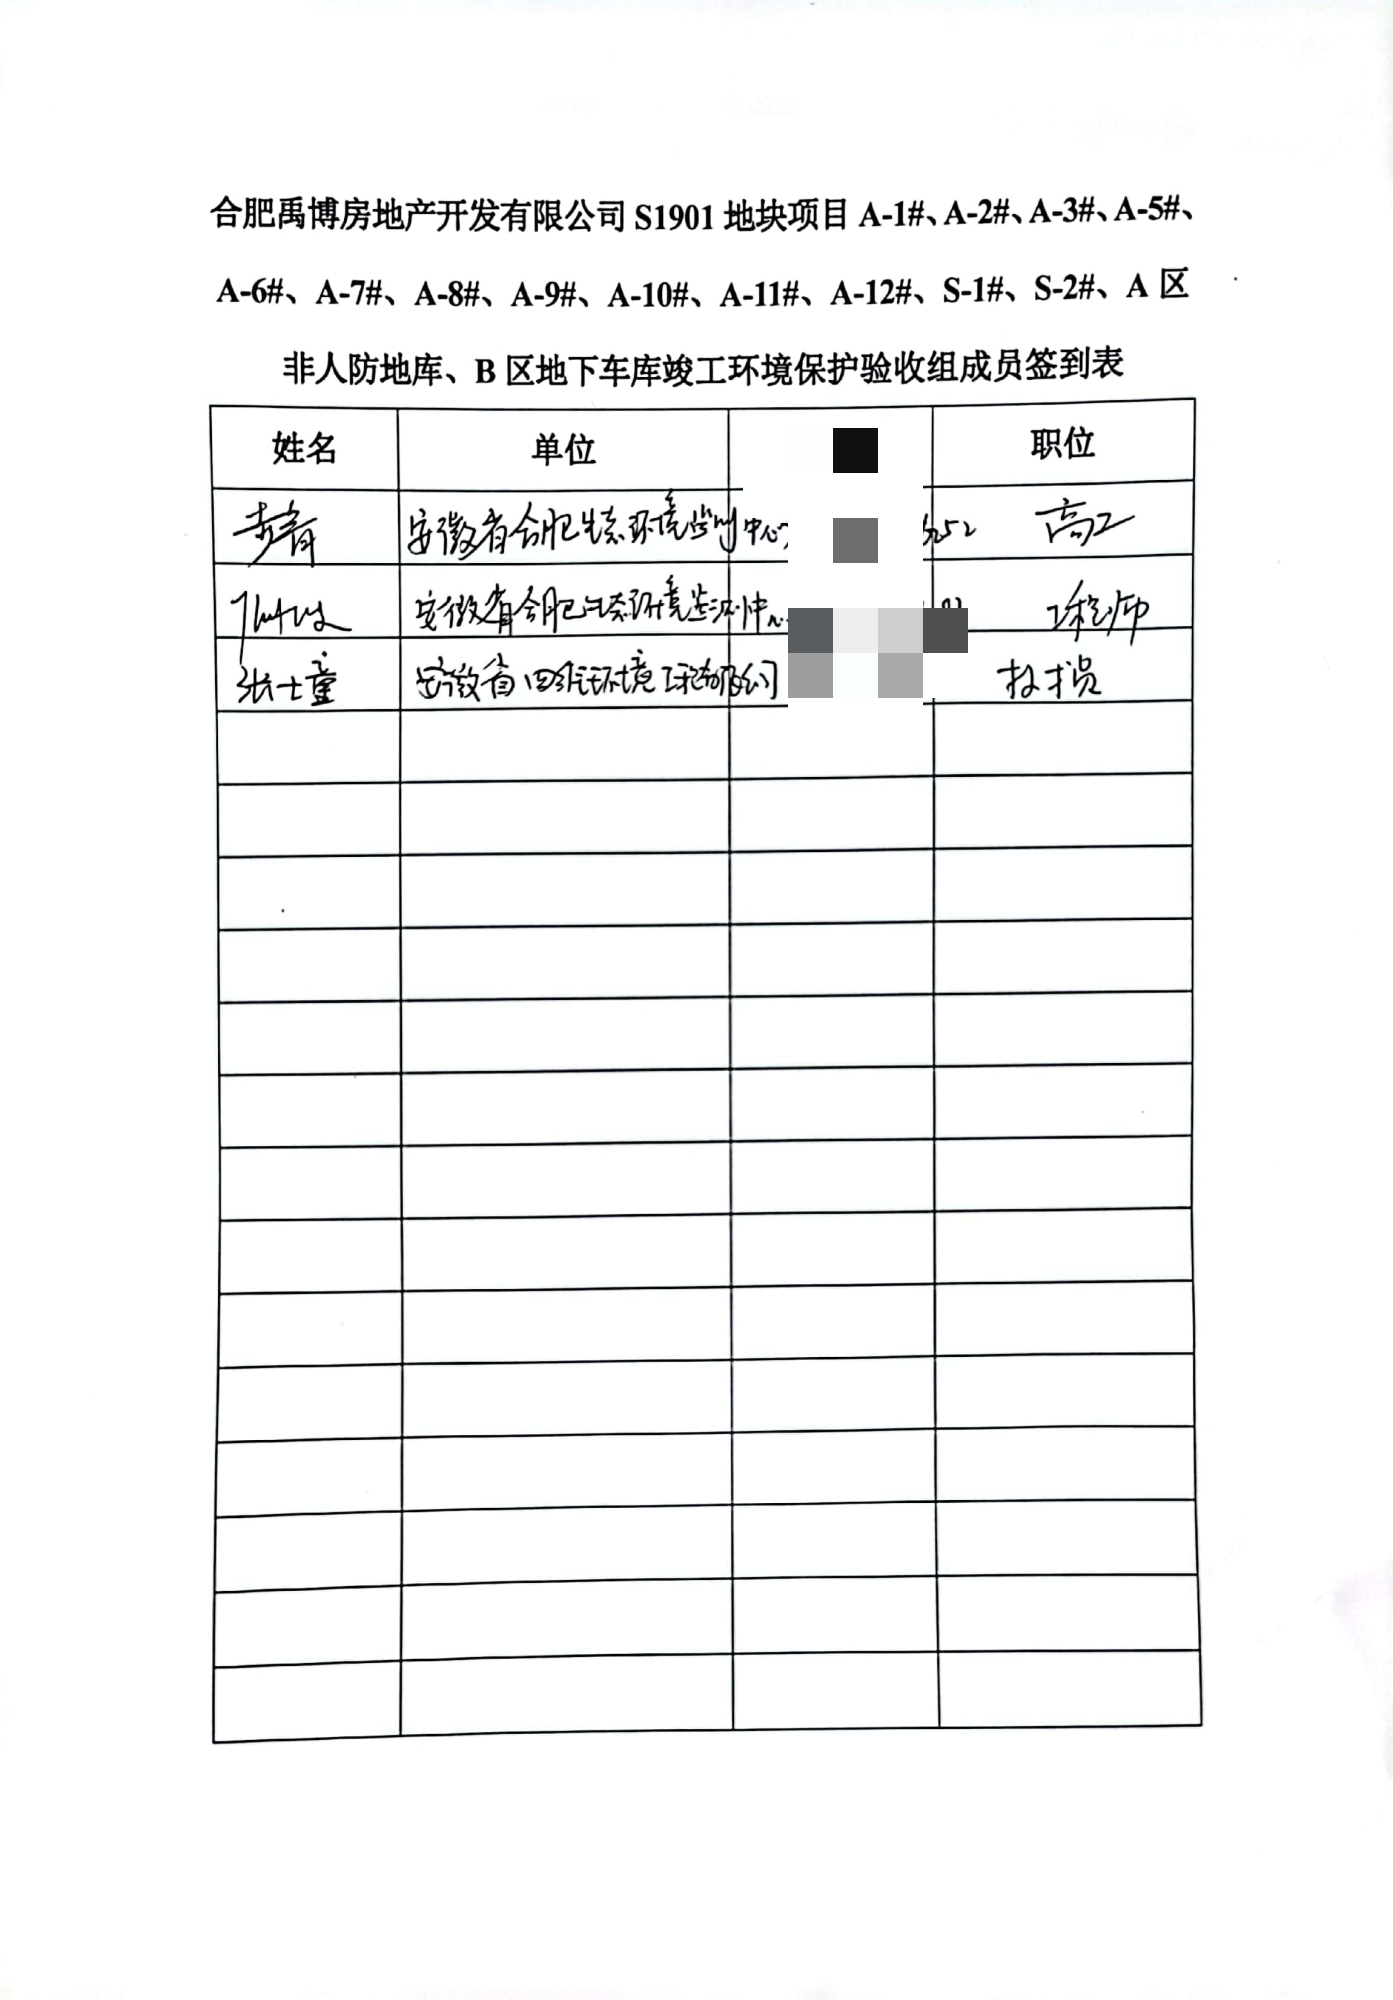 合肥禹博房地产开发有限公司 S1901 地块项目 A-1#、A-2#、A-3#、A-5#、
A-6#、A-7#、A-8#、A-9#、A-10#、A-11#、A-12#、S-1#、S-2#、A 区
非人防地库、B 区地下车库竣工环境保护验收组成员签到表
姓名 单位 职位
安徽省合肥生态环境监测中心 52 高工
安徽省合肥生态环境监测中心 工程师
张士童 安徽省环境工程有限公司 技术员